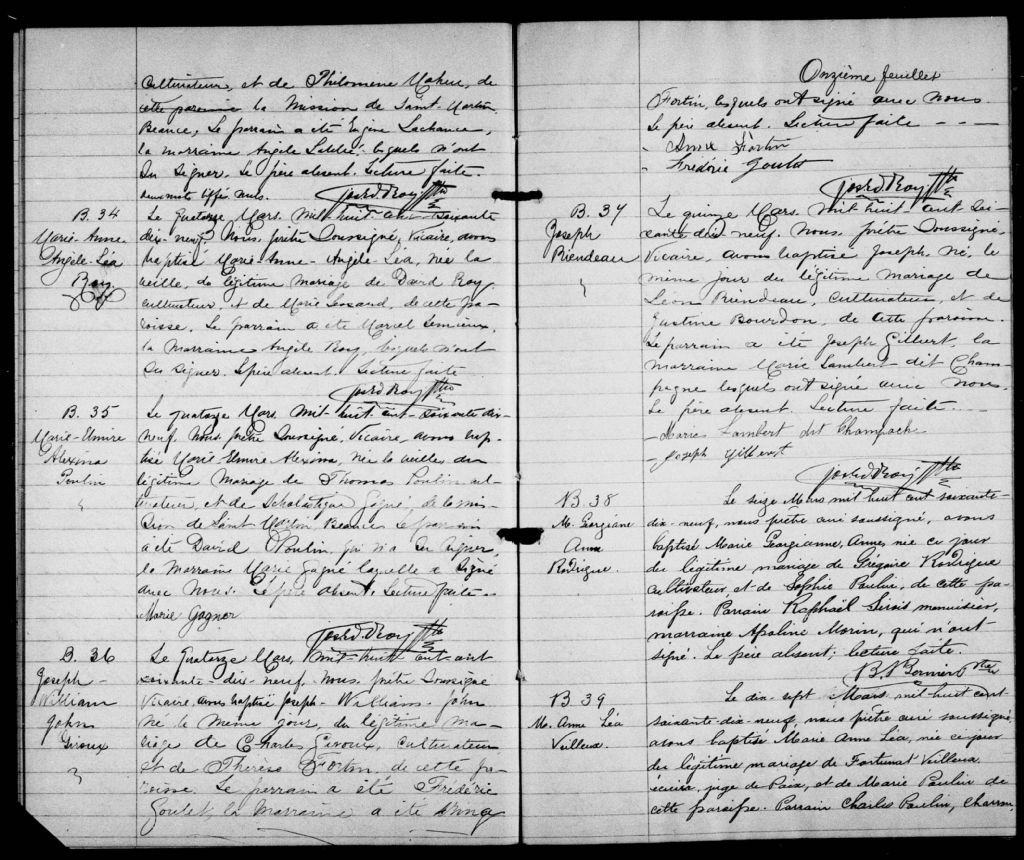 Cultivateur, et de Philomene Maheu, de
cette paroisse la Mission de Saint-Martin
Beauce, Le parrain a été Eugène Lachance,
la marraine Angèle lesquels n'ont
su signer. Le père absent. Lecture faite.
nuls.
Jos. D. Roy Ptre
B. 34
Marie-Anne
Angèle-Léa
Roy
Le Quatorze Mars, mil huit cent soixante
dix-neuf, Nous, prêtre Soussigné, Vicaire, avons
baptisé Marie Anne-Angèle Léa, née la
veille, du légitime mariage de David Roy,
cultivateur, et de Marie de cette pa-
roisse. Le parrain a été Marcel Lemieux,
la Marraine Angèle Roy, lesquels n'ont
su signer. Le père absent. Lecture faite
Jos. D. Roy Ptre
B. 35
Marie-Elmire
Alexina
Poulin
Le quatorze Mars, mil huit cent soixante dix-
neuf, Nous, prêtre Soussigné, Vicaire, avons bap-
tisé Marie-Elmire Alexina, née la veille du
légitime Mariage de Thomas Poulin cul-
tivateur, et de Scholastique Gagné, de la mis-
sion de Saint Martin Beauce Le parrain
a été David Poulin, qui n'a su signer,
la Marraine Marie Gagné laquelle a signé
avec Nous. Le père absent. Lecture faite
Marie Gagner
Jos. D. Roy Ptre
B. 36
Joseph-
William
John
Giroux
Le Quatorze Mars, mil huit cent cent
soixante-dix-neuf, Nous, prêtre Soussigné
Vicaire, avons baptisé Joseph-William-John
né le même jour, du légitime ma-
riage de Charles Giroux, cultivateur
et de Therèse Fortin, de cette pa-
roisse. Le parrain a été Fréderic
Goulet, la Marraine a été Anna
Onzième feuillet
Fortin, lesquels ont signé avec Nous.
Le père absent. Lecture faite - - - -
Anna Fortin
Frédéric Goulet
Jos. D. Roy Ptre
B. 37
Joseph
Riendeau
Le quinze Mars, mil huit cent soi-
xante dix neuf. Nous, prêtre Soussigné,
Vicaire, avons baptisé Joseph, né, le
même jour du légitime mariage de
Leon Riendeau, cultivateur, et de
Justine Bourdon, de cette paroisse.
Le parrain a été Joseph Gilbert, la
marraine Marie Lambert dit Cham-
pagne lesquels ont signé avec Nous.
Le père absent. Lecture faite - - -
Marie Lambert dit Champach
Joseph Gilbert
Jos. D. Roy Ptre
B 38
M. Georgiane
Anna
Rodrigue.
Le seize Mars mil huit cent soixante-
dix-neuf, nous prêtre curé soussigné, avons
baptisé Marie Georgianne, Anna, née ce jour
du légitime mariage de Grégoire Rodrigue
cultivateur et de Sophie Paulin, de cette pa-
roisse. Parrain Raphaël Sirois menuisier,
marraine Apoline Morin, qui n'ont
signé. Le père absent; lecture faite.
B. Bernier Ptre
B 39
M. Anne Léa
Veilleux.
Le dix-sept Mars mil huit cent
soixante-dix-neuf, nous prêtre curé soussigné
avons baptisé Marie Anne Léa, née ce jour
du légitime mariage de Fortunat Veilleux
écuier, juge de Paix, et de Marie Paulin de
cette paroisse. Parrain Charles Paulin, Charron,